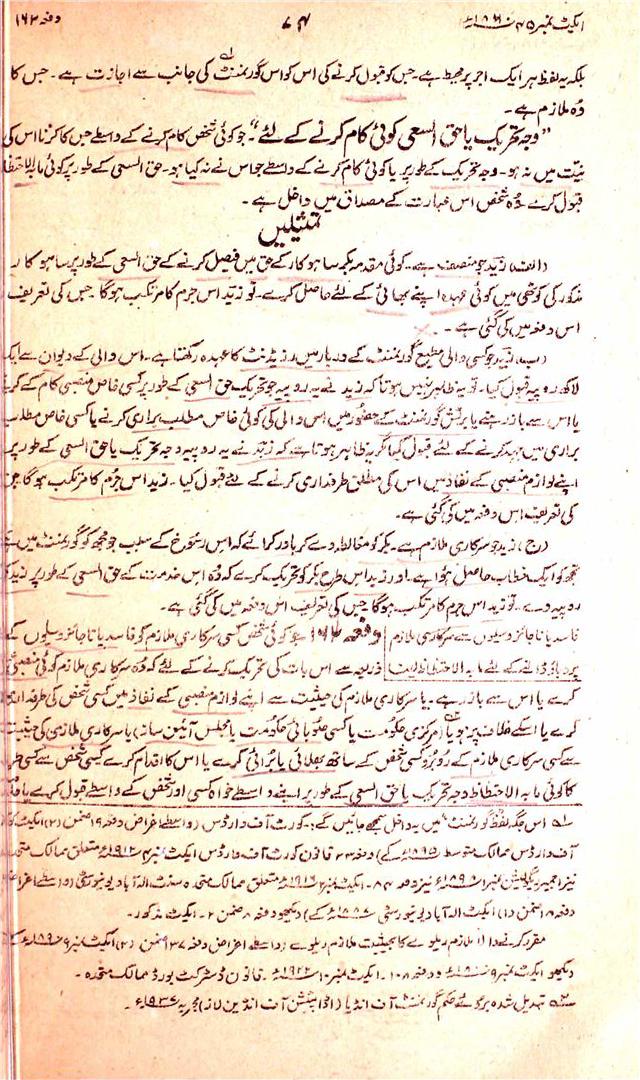 ایکٹ نمبر ۴۵ ۱۸۶۰ء ۷۴ دفعہ ۱۶۲
بلکہ یہ لفظ ہر ایک اجر پر محیط ہے۔ جس کو قبول کرنے کی اس کو اس گورنمنٹ کی جانب سے اجازت ہے۔ جس کا
وہ ملازم ہے۔
"وجہ تحریک یا حق السعی کوئی کام کرنے کے لئے"۔ جو کوئی شخص کام کرنے کے واسطے جس کا کرنا اس کی
نیت میں نہ ہو۔ وجہ تحریک کے طور پر یا کوئی کام کرنے کے واسطے جو اس نے نہ کیا ہو۔ حق السعی کے طور پر کوئی مابہ الاحتظاظ
قبول کرے وہ شخص اس عبارت کے مصداق میں داخل ہے۔
تمثیلیں
(الف) زید جو منصف ہے۔ کوئی مقدمہ بکر ساہوکار کے حق میں فیصل کرنے کے حق السعی کے طور پر ساہوکار
مذکور کی کوٹھی میں کوئی عہدہ اپنے بھائی کے لئے حاصل کرے۔ تو زید اس جرم کا مرتکب ہوگا جس کی تعریف
اس دفعہ میں کی گئی ہے۔
(ب) زید جو کسی والی مطیع گورنمنٹ کے دربار میں رزیڈنٹ کا عہدہ رکھتا ہے۔ اس والی کے دیوان سے ایک
لاکھ روپیہ قبول کیا۔ تو یہ ظاہر نہیں ہوتا کہ زید نے یہ روپیہ جو تحریک حق السعی کے طور پر کسی خاص منصبی کام کے کرنے
یا اس سے باز رہنے یا برٹش گورنمنٹ کے حضور میں اس والی کی کوئی خاص مطلب براری کرنے یا کسی خاص مطلب
براری میں جہد کرنے کے لئے قبول کیا مگر یہ ظاہر ہوتا ہے کہ زید نے یہ روپیہ وجہ تحریک یا حق السعی کے طور پر
اپنے لوازم منصبی کے نفاذ میں اس کی مطلق طرفداری کرنے کے لئے قبول کیا۔ زید اس جرم کا مرتکب ہوگا جس
کی تعریف اس دفعہ میں کی گئی ہے۔
(ج) زید جو سرکاری ملازم ہے۔ بکر کو مغالطہ دے کر باور کرائے کہ اس رسوخ کے سبب جو مجھ کو گورنمنٹ میں ہے
تجھ کو ایک خطاب حاصل ہوا ہے۔ اور زید اس طرح بکر کو تحریک کرے کہ وہ اس خدمت کے حق السعی کے طور پر زید کو
روپیہ دے۔ تو زید اس جرم کا مرتکب ہوگا جس کی تعریف اس دفعہ میں کی گئی ہے۔
فاسد یا ناجائز وسیلوں سے سرکاری ملازم دفعہ ۱۶۲ جو کوئی شخص کسی سرکاری ملازم کو فاسد یا ناجائز وسیلوں کے
پر دباؤ ڈالنے کے لئے مابہ الاحتظاظ لینا ذریعہ سے اس بات کی تحریک کرنے کے لئے کہ وہ سرکاری ملازم کوئی منصبی
کرے یا اس سے باز رہے۔ یا سرکاری ملازم کی حیثیت سے اپنے لوازم منصبی کے نفاذ میں کسی شخص کی طرفداری
کرے یا اسکے خلاف پر ہو یا (مرکزی حکومت یا کسی صوبائی حکومت یا مجلس آئین ساز) یا سرکاری ملازمی کی حیثیت
سے کسی سرکاری ملازم کے روبرو کسی شخص کے ساتھ بھلائی یا برائی کرے یا اس کا اقدام کرے کسی شخص سے کسی طرح
کا کوئی مابہ الاحتظاظ وجہ تحریک یا حق السعی کے طور پر اپنے واسطے خواہ کسی اور شخص کے واسطے قبول کرے یا
۱ے اس جگہ لفظ گورنمنٹ میں یہ داخل سمجھے جائیں گے:۔ کورٹ آف وارڈس (واسطے اغراض دفعہ ۱۹ ضمن (۲) ایکٹ
آف وارڈس ممالک متوسط ۱۸۶۵ء کے) دفعہ ۲۳ قانون کورٹ آف وارڈس ایکٹ نمبر ۴ ۱۹۱۲ء متعلق ممالک متحدہ
نیز اجمیر ریگولیشن نمبر ۱۸۹۰ء نیز دفعہ ۸۴۔ ایکٹ نمبر ۲ ۱۹۱۶ء متعلق ممالک متحدہ سنٹ الہ آباد یونیورسٹی (واسطے اغراض
دفعہ ۸ ضمن (۱) ایکٹ الہ آباد یونیورسٹی ۱۸۸۷ء کے) دیکھو دفعہ ۸ ضمن ۲۔ ایکٹ مذکور۔
مقرر کرنے (۱) ملازم ریلوے کا بحیثیت ملازم ریلوے (واسطے اغراض دفعہ ۱۳۷ ضمن (۲) ایکٹ نمبر ۹ ۱۸۹۰ء کے
دیکھو ایکٹ نمبر ۹ ۱۸۹۰ء و دفعہ ۱۰۸۔ ایکٹ نمبر ۱۰ ۱۹۲۲ء۔ قانون ڈسٹرکٹ بورڈ ممالک متحدہ۔
۲ے تبدیل شدہ بروئے حکم گورنمنٹ آف انڈیا (اڈاپٹیشن آف انڈین لاز) مجریہ ۱۹۳۷ء۔